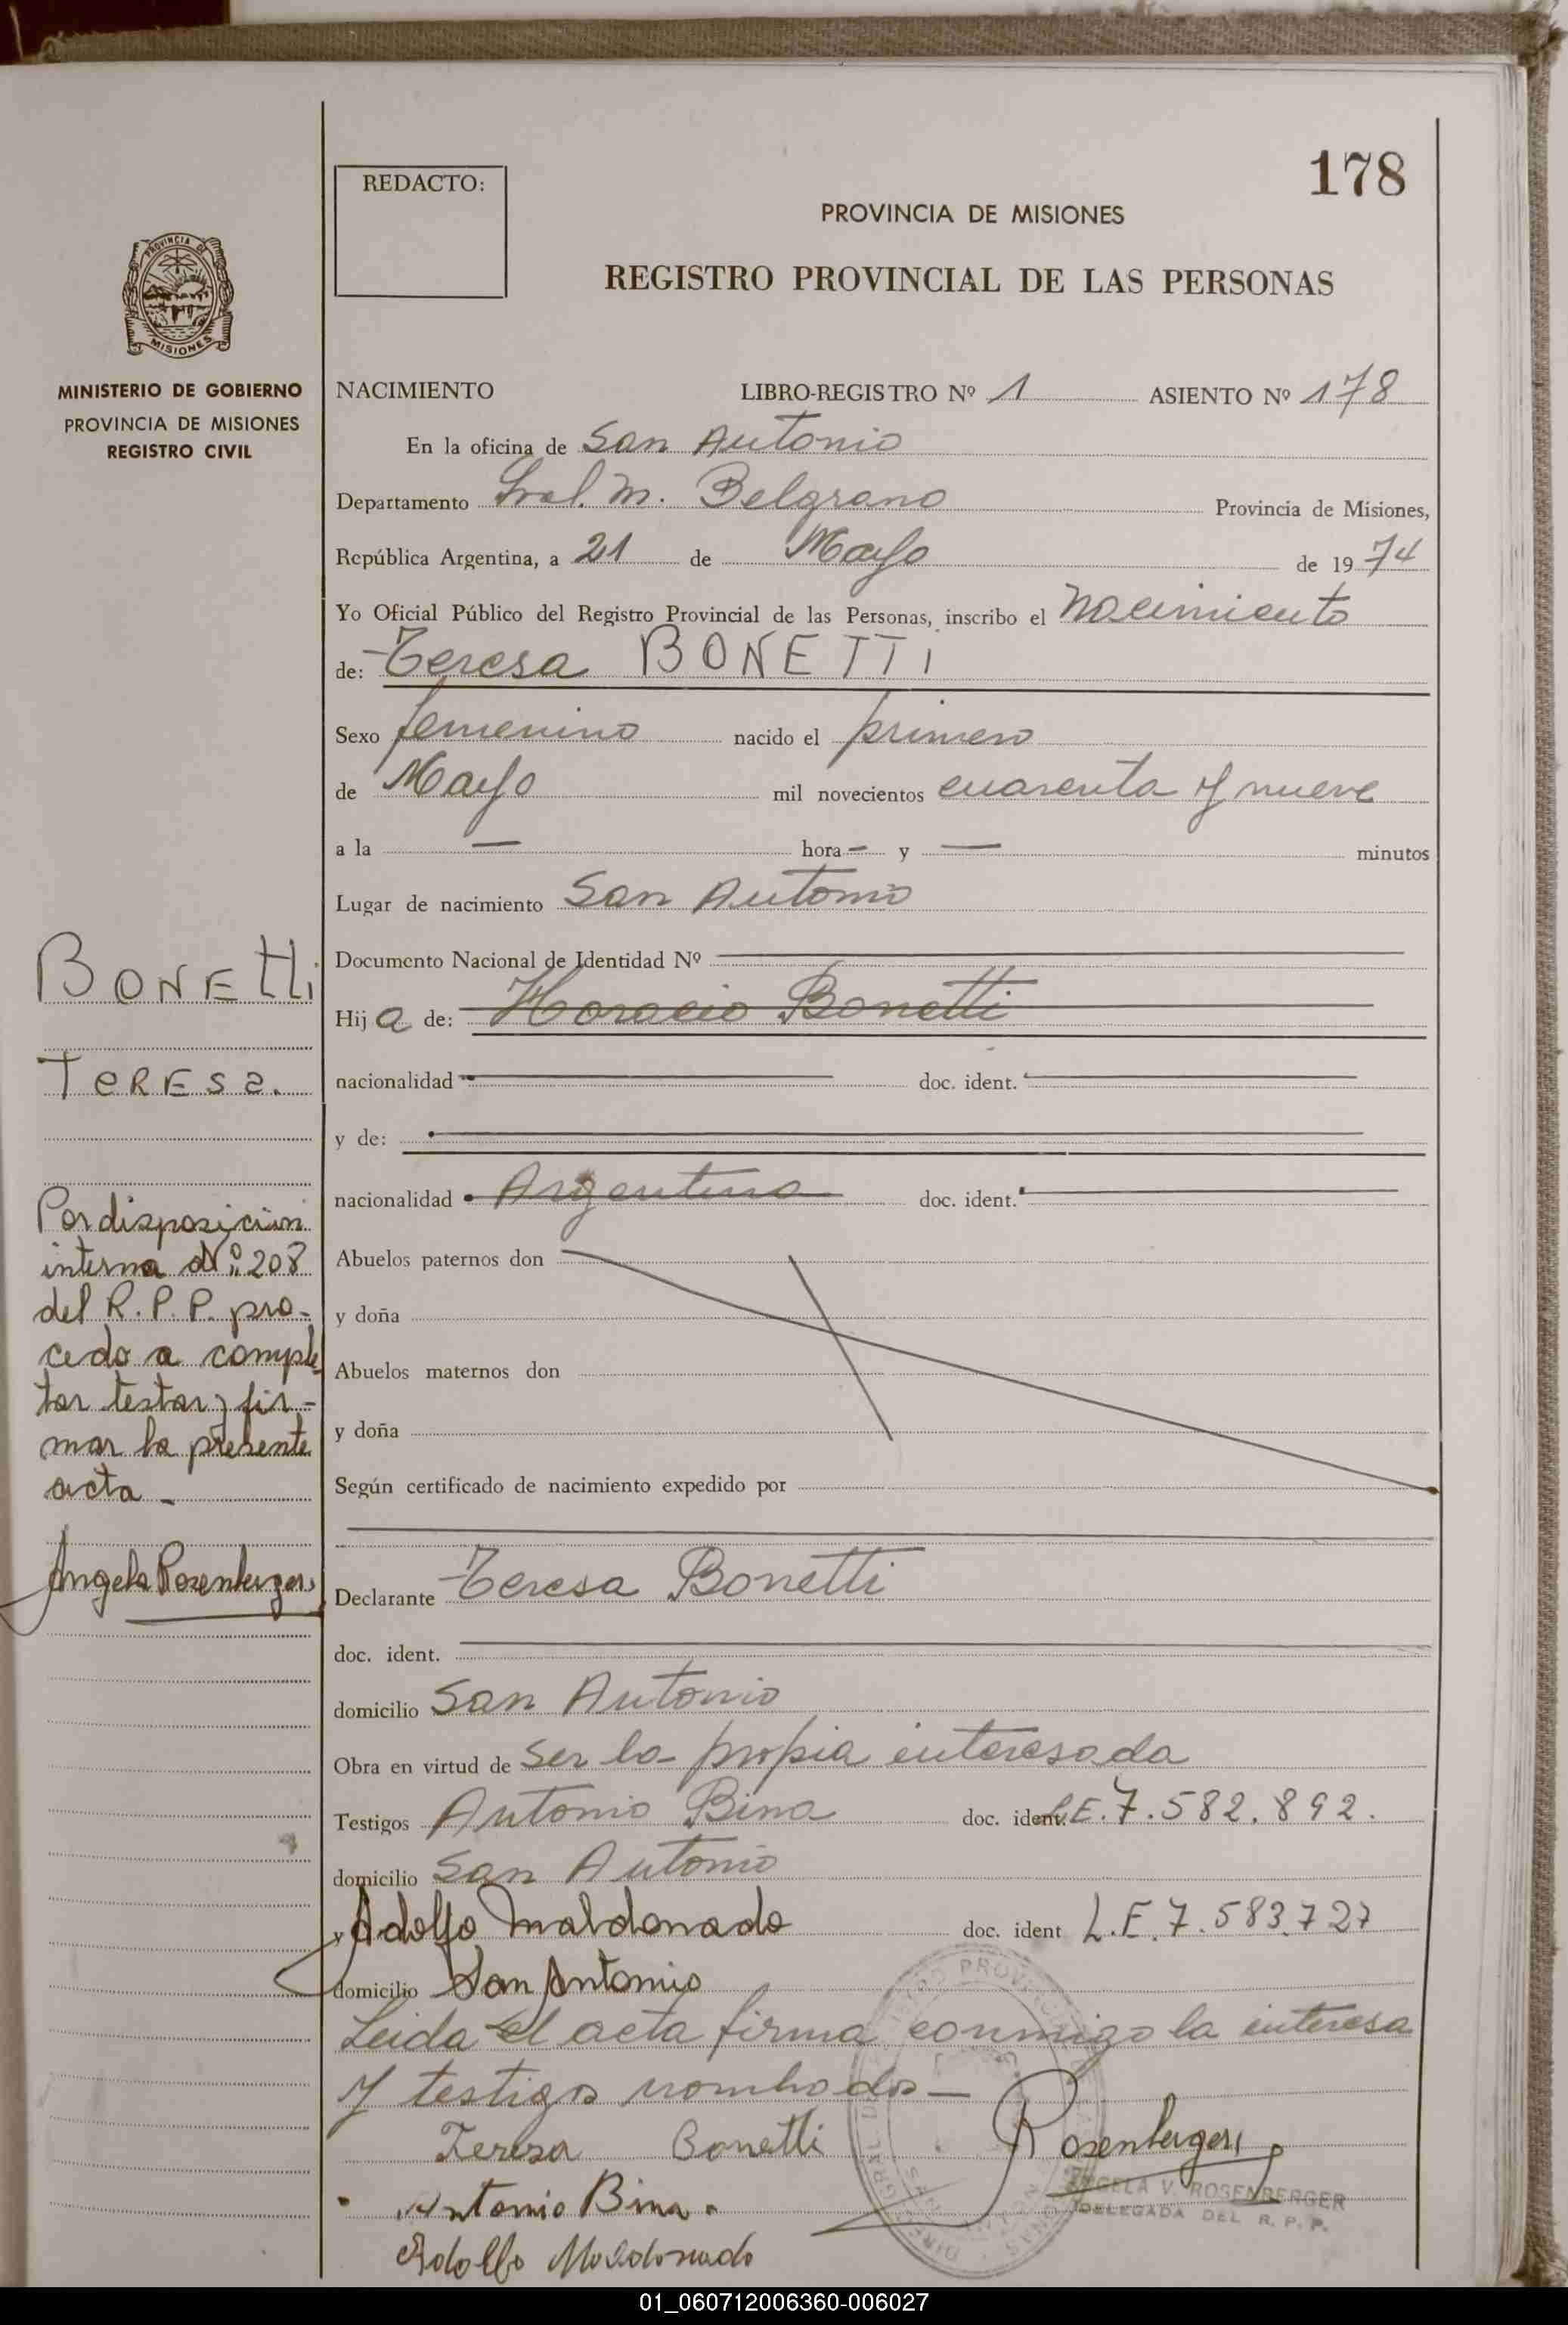 178
REDACTO:
PROVINCIA DE MISIONES
REGISTRO PROVINCIAL DE LAS PERSONAS
PROVINCIA DE
MISIONES
MINISTERIO DE GOBIERNO
PROVINCIA DE MISIONES
REGISTRO CIVIL
NACIMIENTO LIBRO-REGISTRO Nº 1 ASIENTO Nº 178
En la oficina de San Antonio
Departamento Gral. M. Belgrano Provincia de Misiones,
República Argentina, a 21 de Mayo de 1974
Yo Oficial Público del Registro Provincial de las Personas, inscribo el Nacimiento
de: Teresa BONETTI
Sexo femenino nacido el primero
de Mayo mil novecientos cuarenta y nueve
a la — hora — y — minutos
Lugar de nacimiento San Antonio
Documento Nacional de Identidad Nº
Hija de: Horacio Bonetti
nacionalidad doc. ident.
y de:
nacionalidad Argentina doc. ident.
Abuelos paternos don
y doña
Abuelos maternos don
y doña
Según certificado de nacimiento expedido por
Declarante Teresa Bonetti
doc. ident.
domicilio San Antonio
Obra en virtud de ser la propia interesada
Testigos Antonio Bina doc. ident. L.E. 7.582.892.
domicilio San Antonio
y Adolfo Maldonado doc. ident L.E. 7.583.727
domicilio San Antonio
Leida el acta firma conmigo la interesa
y testigos nombrados—
Teresa Bonetti
Rosenberger
Antonio Bina.
ANGELA V. ROSENBERGER
DELEGADA DEL R. P. P.
Adolfo Maldonado
BONETTI
TERESA.
Por disposición
interna Nº 208
del R. P. P. pro-
cedo a comple
tar testar y fir-
mar la presente
acta -
Angela Rosenberger
01_060712006360-006027